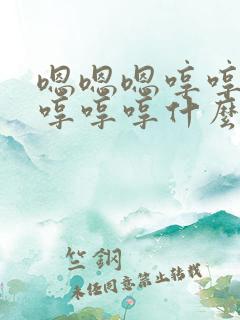 嗯嗯嗯哼哼
哼哼哼什麼
竺鋼
未经同意禁止转载